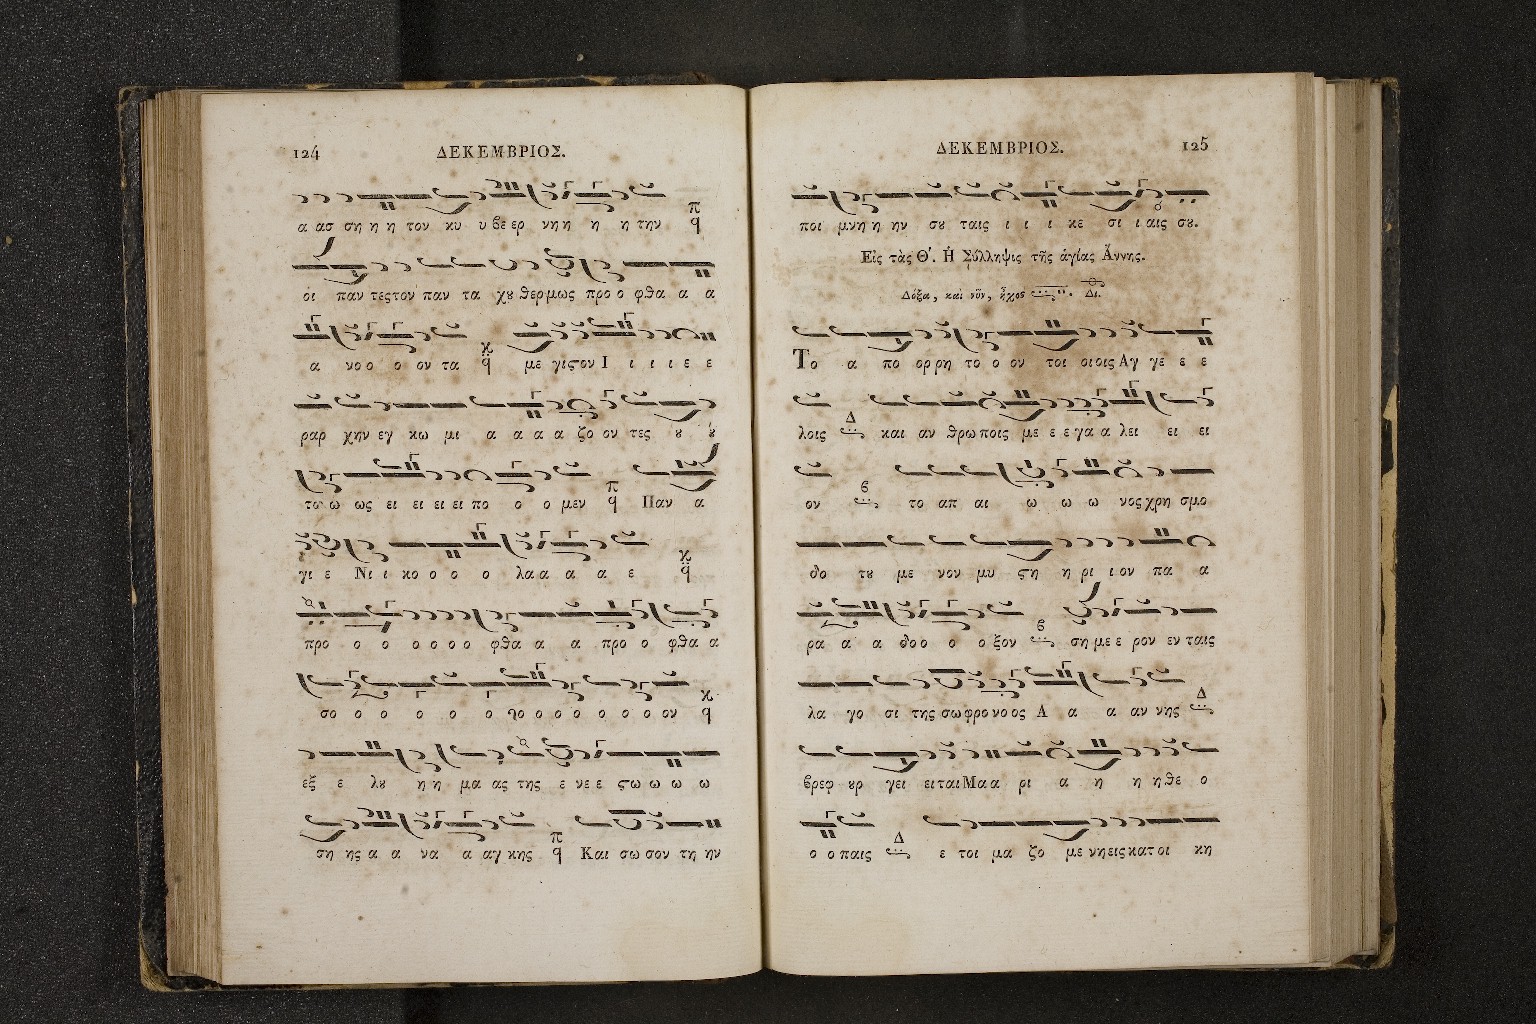 124 ΔΕΚΕΜΒΡΙΟΣ.
α ασ ση η η τον κυ υ βε ερ νη η η η την
οἱ παν τες τον παν τα χȣ θερ μως προ ο φθα α α
α νο ο ο ον τα με γις τον Ι ι ι ι ε ε
ραρ χην εγ κω μι α α α α ζο ον τες ȣ ȣ
το ω ως ει ει ει ει πο ο ο μεν Παν α
γι ε Νι ι κο ο ο ο λα α α α ε
προ ο ο ο ο ο ο φθα α α προ ο φθα α
σο ο ο ο ο ο ο ο ο ο ο ο ο ον
εξ ε λȣ η η μα ας της ε νε ε ϛω ω ω ω
ση ης α α να α αγ κης Και σω σον τη ην
ΔΕΚΕΜΒΡΙΟΣ. 125
ποι μνη η ην σȣ ταις ι ι ι κε σι ι αις σȣ.
Εἰς τὰς Θ΄. Ἡ Σύλληψις τῆς ἁγίας Ἄννης.
Δόξα, καὶ νῦν, ἦχος Δι.
Το α πο ορ ρη το ο ον τοι οι οις Αγ γε ε ε
λοις και αν θρω ποις με ε ε γα α λει ει ει
ον το απ αι ω ω ω νος χρη σμο
δο τȣ με νον μυ ϛη η ρι ι ον πα α
ρα α α δο ο ο ο ξον ση με ε ρον εν ταις
λα γο σι της σω φρο νο ος Α α α αν νης
βρεφ ȣρ γει ει ται Μα α ρι α η η η θε ο
ο ο παις ε τοι μα ζο με νη εις κατ οι κη